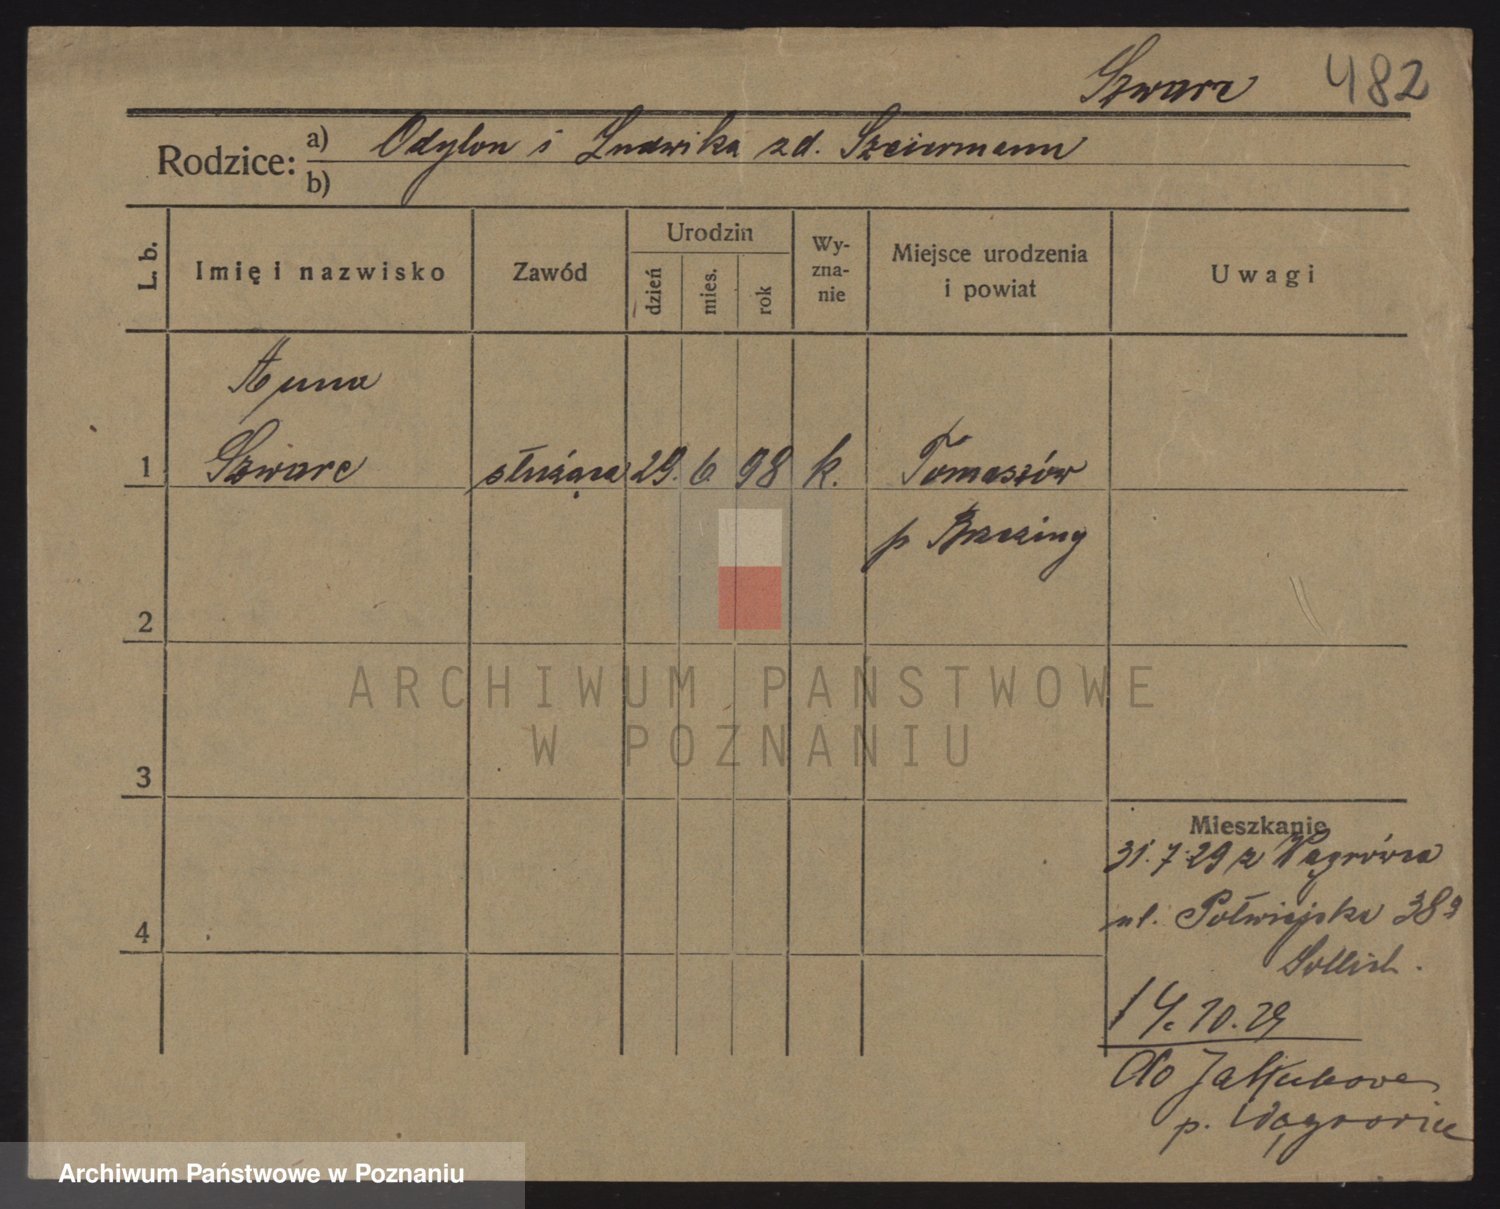 Szwarc 482
Rodzice: a) Odylon i Ludwika zd. Szeiermann
b)
L. b. Imię i nazwisko Zawód Urodzin dzień mies. rok Wy-zna-nie Miejsce urodzenia i powiat Uwagi
Anna
1 Szwarc służąca 29. 6 98 k. Tomaszów
p Brzeziny
2
ARCHIWUM PAŃSTWOWE
W POZNANIU
3
Mieszkanie
31.7.29 z Wągrówca
ul. Półwiejska 38
4
14. 10. 29
do Jakubowa
p. Wągrowiec
Archiwum Państwowe w Poznaniu